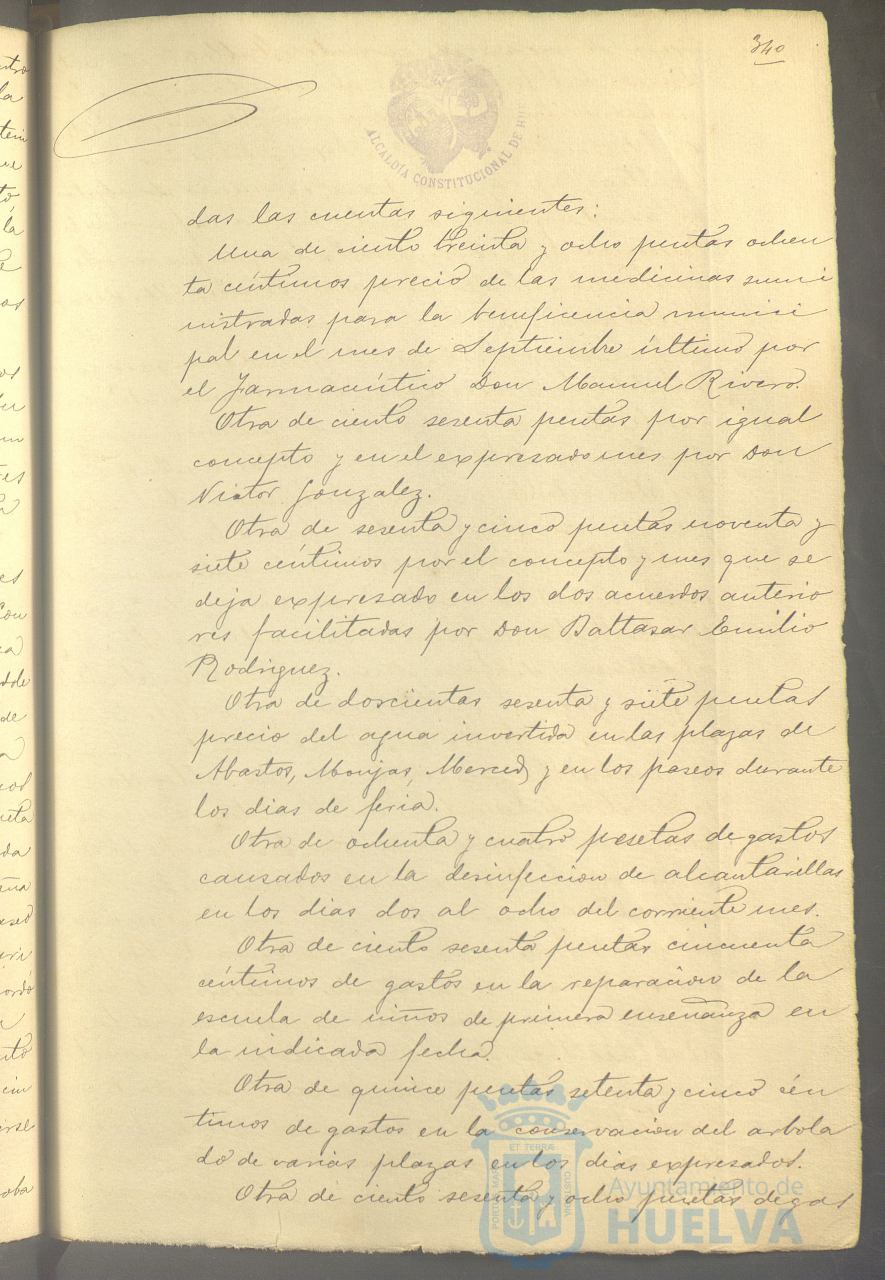 340
ALCALDÍA CONSTITUCIONAL DE HU
das las cuentas siguientes:
Una de ciento treinta y ocho pesetas ochen
ta céntimos precio de las medicinas sumi
nistradas para la beneficencia munici
pal en el mes de Septiembre último por
el Farmacéutico Don Manuel Rivero.
Otra de ciento sesenta pesetas por igual
concepto y en el expresado mes por Don
Victor Gonzalez.
Otra de sesenta y cinco pesetas noventa y
siete céntimos por el concepto y mes que se
deja expresado en los dos acuerdos anterio
res facilitadas por Don Baltasar Emilio
Rodriguez.
Otra de doscientas sesenta y siete pesetas
precio del agua invertida en las plazas de
Abastos, Monjas, Merced y en los paseos durante
los dias de feria.
Otra de ochenta y cuatro pesetas de gastos
causados en la desinfeccion de alcantarillas
en los dias dos al ocho del corriente mes.
Otra de ciento sesenta pesetas cincuenta
céntimos de gastos en la reparacion de la
escuela de niños de primera enseñanza en
la indicada fecha.
Otra de quince pesetas setenta y cinco cén
timos de gastos en la conservacion del arbola
do de varias plazas en los dias expresados.
Otra de ciento sesenta y ocho pesetas de gas
ET TERRAE
Ayuntamiento de
HUELVA